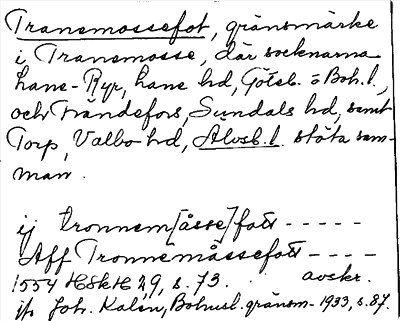 Tranemossefot, gränsmärke
i Tranemosse, där socknarna
Lane-Ryr, Lane hd, Göteb. o Boh. l.,
och Frändefors, Sundals hd, samt
Torp, Valbo hd, Älvsb. l. stöta sam-
man.
ij tronnem[åsse]fott - - - - -
Aff Tronnemåssefott - - - -
1554 HSkH 29, s. 73. avskr.
jfr Joh. Kalén, Bohusl. gränsm- 1933, s. 87.